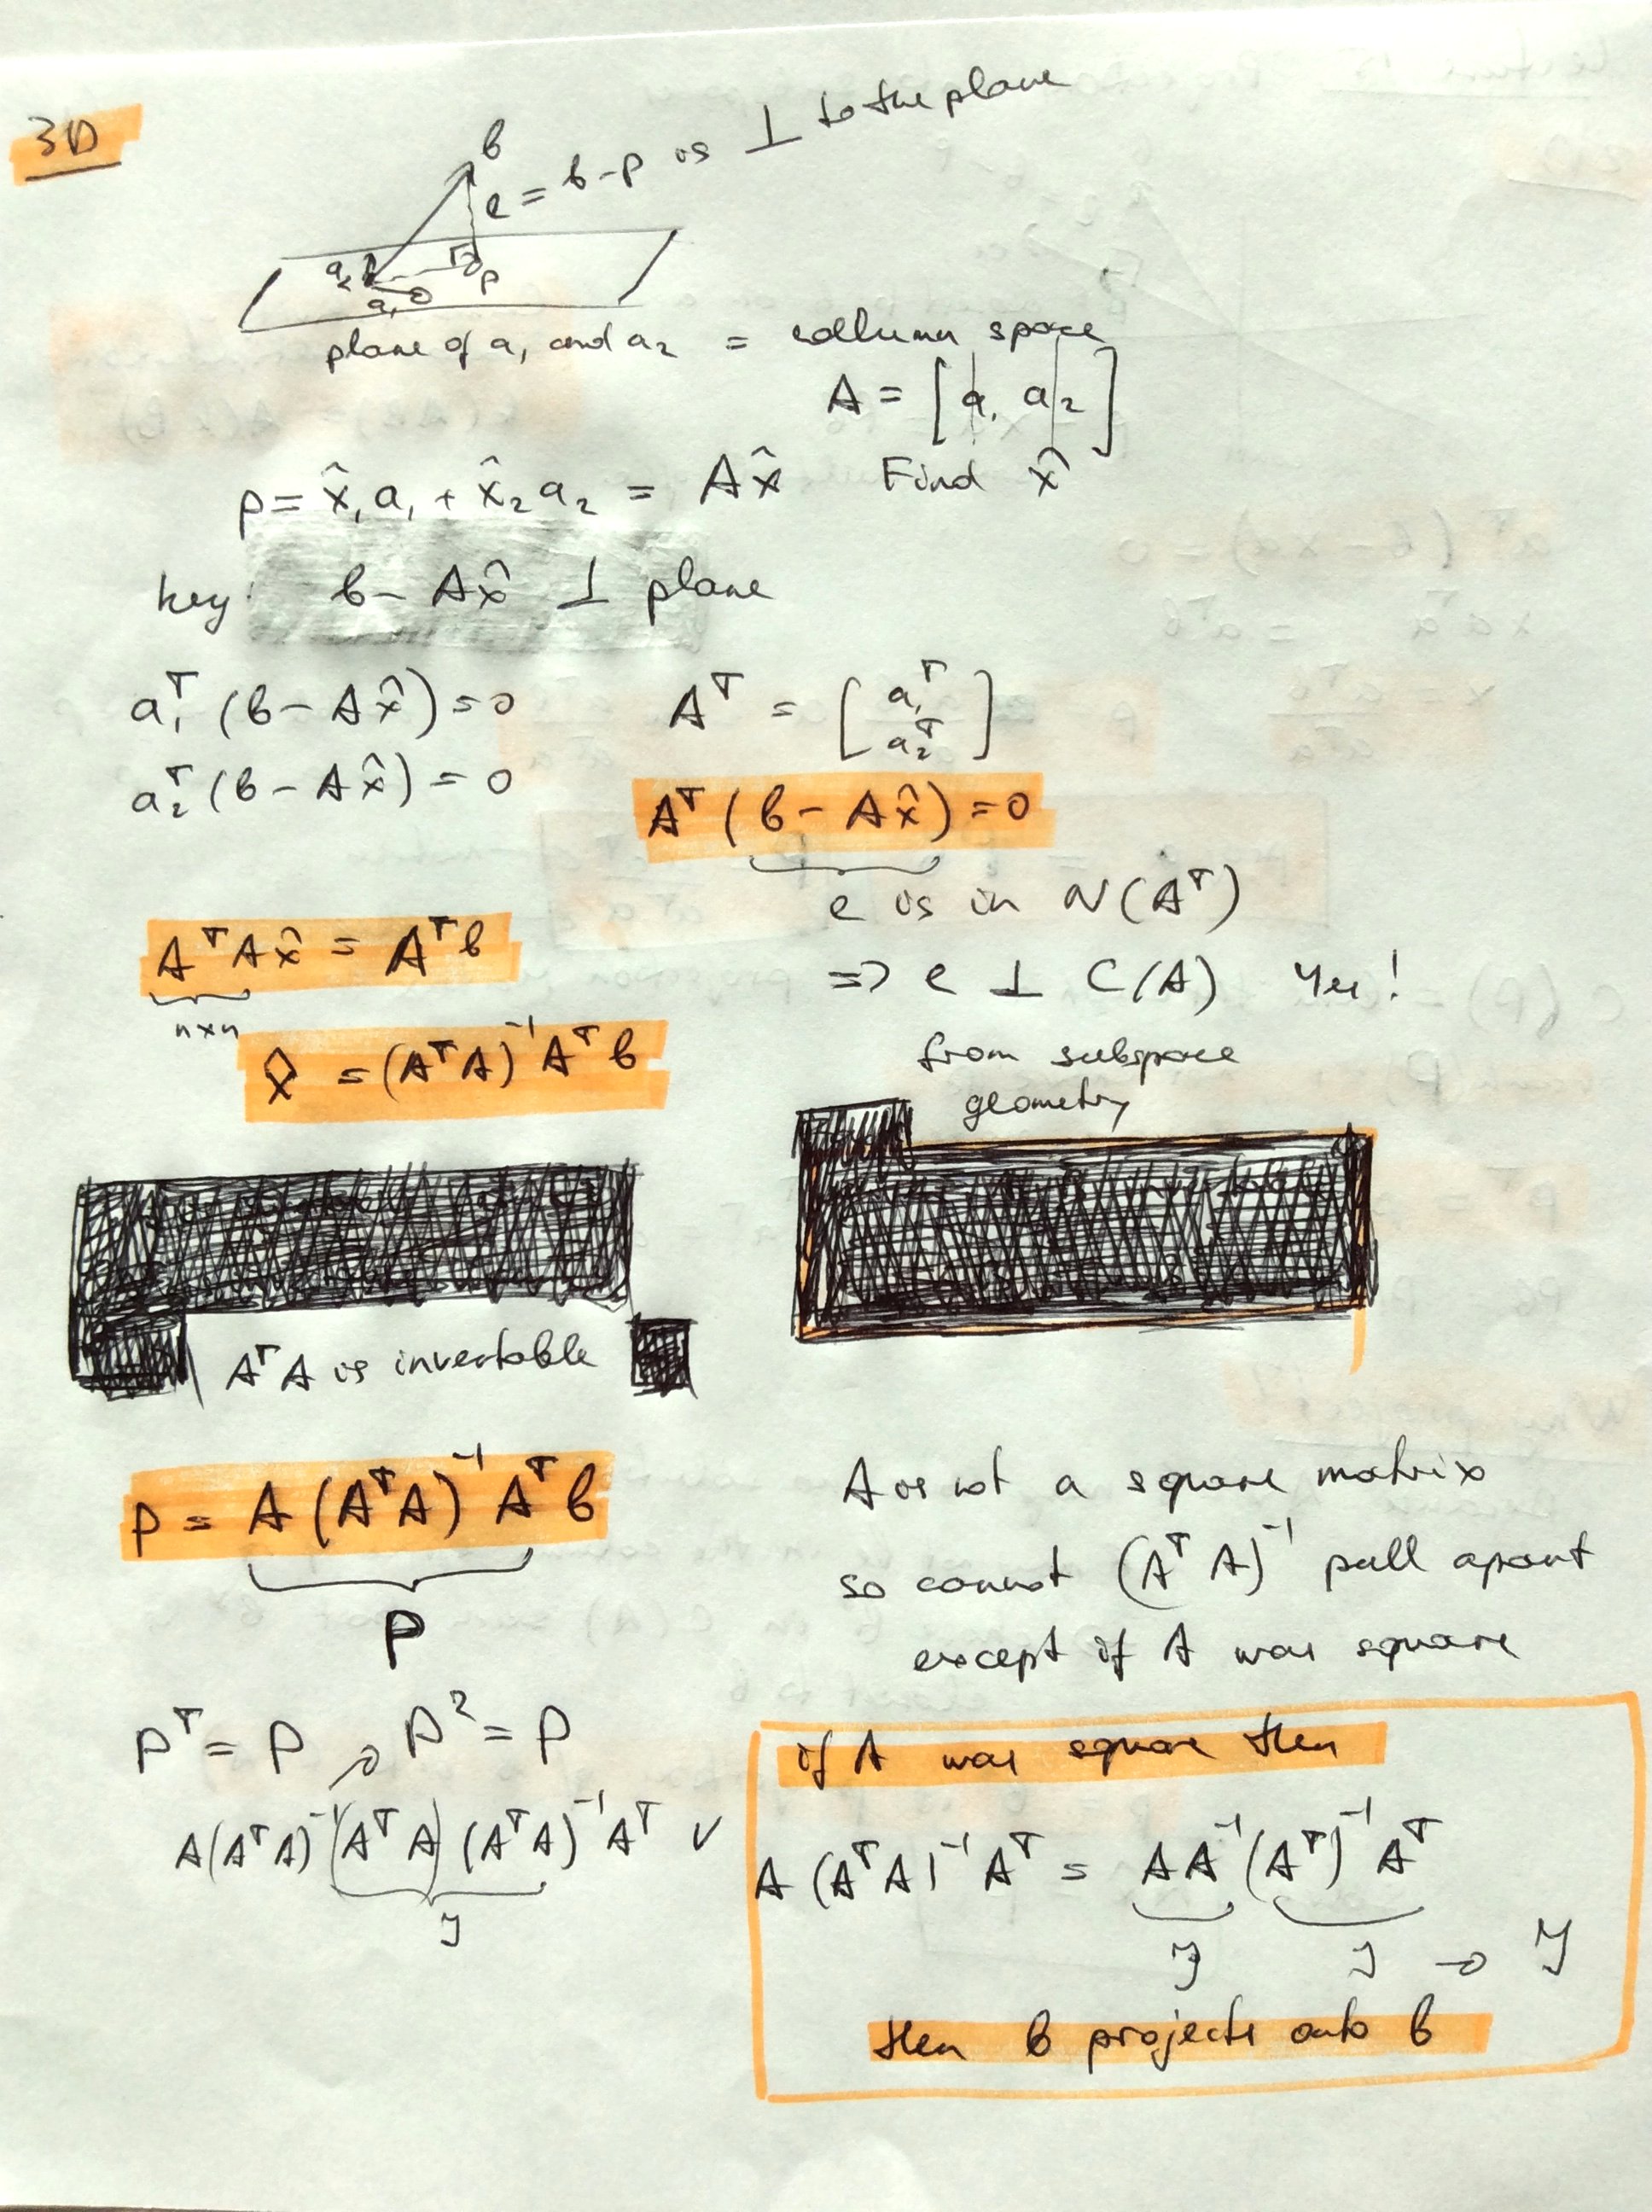 3D
b
e = b-p is ⊥ to the plane
a₂
p
a₁
plane of a₁ and a₂ = collumn space
A = [a₁ a₂]
p = x̂₁a₁ + x̂₂a₂ = Ax̂ Find x̂
key: b - Ax̂ ⊥ plane
a₁ᵀ(b - Ax̂) = 0
a₂ᵀ(b - Ax̂) = 0
Aᵀ = [a₁ᵀ a₂ᵀ]
Aᵀ(b - Ax̂) = 0
e is in N(Aᵀ)
=> e ⊥ C(A) Yes!
from subspace
geometry
AᵀAx̂ = Aᵀb
n×n
x̂ = (AᵀA)⁻¹Aᵀb
AᵀA is invertable
p = A(AᵀA)⁻¹Aᵀb
P
A is not a square matrix
so cannot (AᵀA)⁻¹ pull apart
except if A was square
Pᵀ = P → P² = P
A(AᵀA)⁻¹(AᵀA)(AᵀA)⁻¹Aᵀ ✓
I
if A was square then
A(AᵀA)⁻¹Aᵀ = AA⁻¹(Aᵀ)⁻¹Aᵀ
I I → I
then b projects onto b